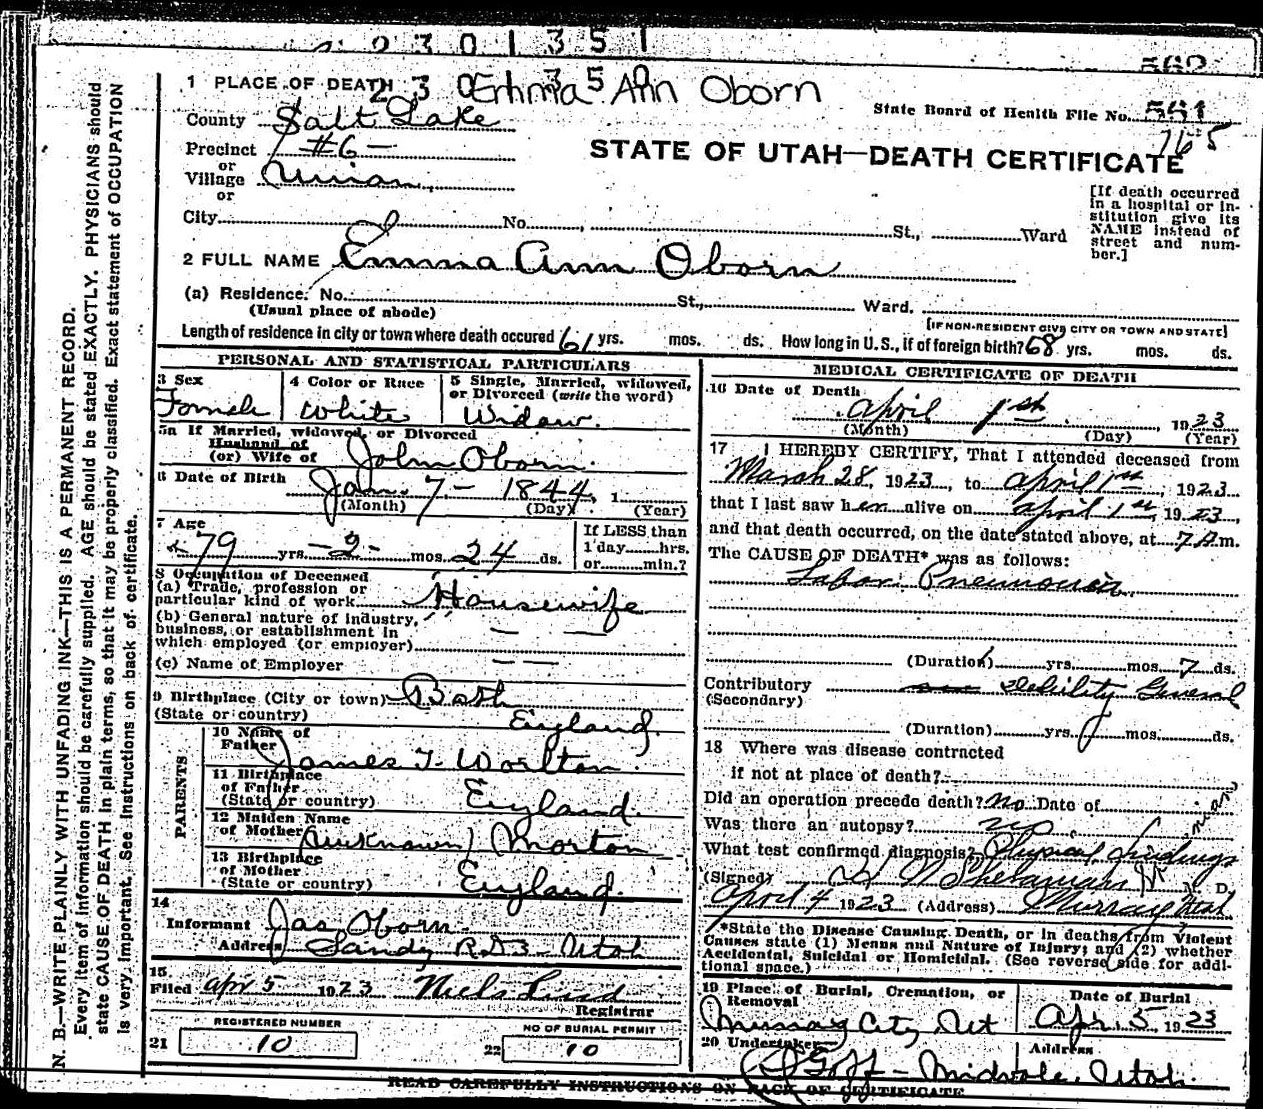 2 3 0 1 3 5 1
1 PLACE OF DEATH Emma Ann Oborn
State Board of Health File No. 551
765
County Salt Lake
Precinct #6 -
STATE OF UTAH—DEATH CERTIFICATE
or
Village Union
or
[If death occurred in a hospital or institution give its NAME instead of street and number.]
City No. St., Ward
2 FULL NAME Emma Ann Oborn
(a) Residence. No. St., Ward.
(Usual place of abode)
[IF NON-RESIDENT GIVE CITY OR TOWN AND STATE]
Length of residence in city or town where death occured 61 yrs. mos. ds. How long in U.S., if of foreign birth? 68 yrs. mos. ds.
PERSONAL AND STATISTICAL PARTICULARS
3 Sex
Female
4 Color or Race
White
5 Single, Married, widowed, or Divorced (write the word)
Widow.
5a If Married, widowed, or Divorced
Husband of
(or) Wife of John Oborn.
6 Date of Birth Jan. 7 - 1844, 1
(Month) (Day) (Year)
7 Age
79 yrs. -2- mos. 24 ds.
If LESS than
1 day hrs.
or min.?
8 Occupation of Deceased
(a) Trade, profession or
particular kind of work. Housewife
(b) General nature of industry,
business, or establishment in
which employed (or employer) — —
(c) Name of Employer — —
9 Birthplace (City or town) Bath
(State or country) England.
PARENTS
10 Name of
Father James T. Worlton.
11 Birthplace
of Father
(State or country) England.
12 Maiden Name
of Mother (unknown) Morton
13 Birthplace
of Mother
(State or country) England.
14
Informant Jas Oborn.
Address Sandy RD3 - Utah
15.
Filed Apr 5 1923 Niels Lind
Registrar
REGISTERED NUMBER
21 10
NO OF BURIAL PERMIT
22 10
MEDICAL CERTIFICATE OF DEATH
16 Date of Death
April 1st 1923
(Month) (Day) (Year)
17 I HEREBY CERTIFY, That I attended deceased from
March 28, 1923, to April 1st, 1923
that I last saw her alive on April 1st 1923,
and that death occurred, on the date stated above, at 7 A.m.
The CAUSE OF DEATH* was as follows:
Lobar Pneumonia
(Duration) yrs. mos. 7 ds.
Contributory Debility General
(Secondary)
(Duration) yrs. mos. ds.
18 Where was disease contracted
if not at place of death?
Did an operation precede death? No Date of
Was there an autopsy? no
What test confirmed diagnosis? Physical findings
(Signed) M. D.
April 4 1923 (Address) Murray Utah
*State the Disease Causing Death, or in deaths from Violent
Causes state (1) Means and Nature of Injury; and (2) whether
Accidental, Suicidal or Homicidal. (See reverse side for additional space.)
19 Place of Burial, Cremation, or
Removal
Murray City Ut
Date of Burial
Apr. 5 1923
20 Undertaker
Goff - Midvale, Utah.
Address
READ CAREFULLY INSTRUCTIONS ON BACK OF CERTIFICATE
N. B.—WRITE PLAINLY WITH UNFADING INK—THIS IS A PERMANENT RECORD.
Every item of information should be carefully supplied. AGE should be stated EXACTLY. PHYSICIANS should
state CAUSE OF DEATH in plain terms, so that it may be properly classified. Exact statement of OCCUPATION
is very important. See instructions on back of certificate.